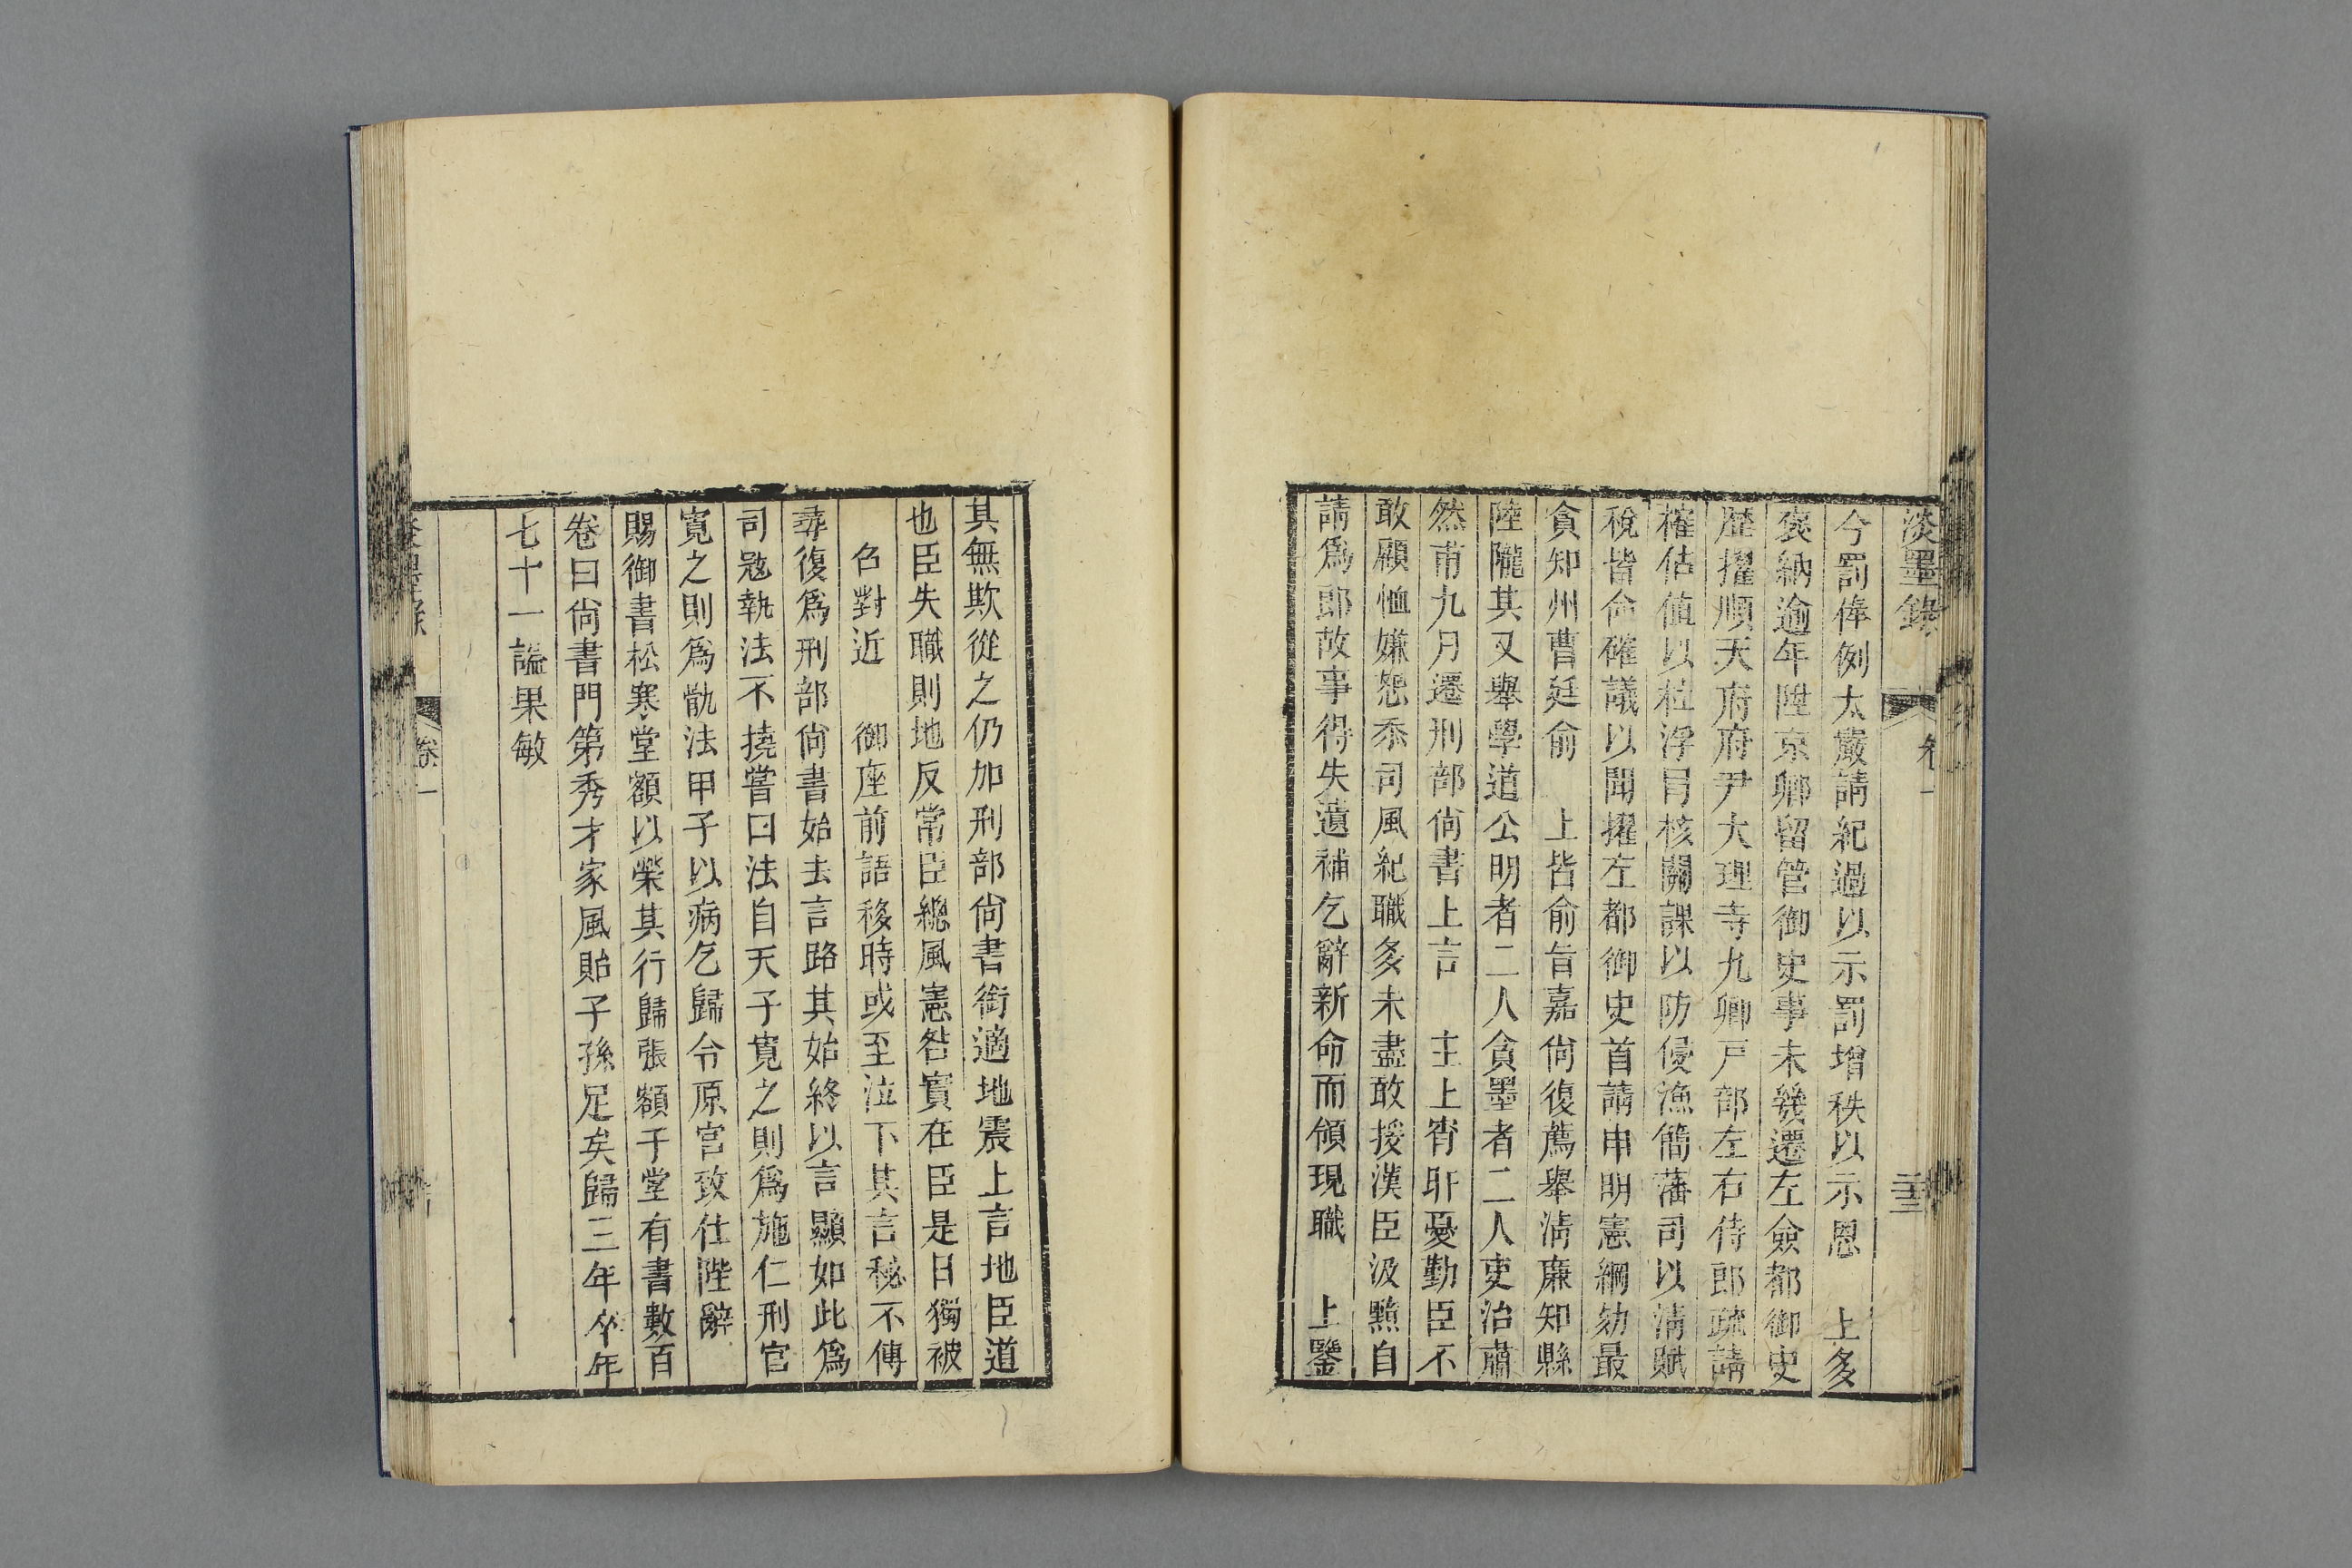 淡墨錄 卷一
今罰俸例太嚴請紀過以示罰增秩以示恩 上多
褒納逾年陞京卿留管御史事未幾遷左僉都御史
歷擢順天府府尹大理寺九卿戸部左右侍郎疏請
榷估值以杜浮冒核關課以防侵漁簡藩司以清賦
稅皆命確議以聞擢左都御史首請申明憲綱劾最
貪知州曹廷俞 上皆俞旨嘉尙復薦舉淸廉知縣
陸隴其又舉學道公明者二人貪墨者二人吏治肅
然甫九月遷刑部尙書上言 主上宵旰憂勤臣不
敢顧恤嫌怨忝司風紀職多未盡敢援漢臣汲黯自
請爲郎故事得失遺補乞辭新命而領現職 上鑒
其無欺從之仍加刑部尙書銜適地震上言地臣道
也臣失職則地反常臣總風憲咎實在臣是日獨被
召對近 御座前語移時或至泣下其言秘不傳
尋復爲刑部尙書始去言路其始終以言顯如此爲
司宼執法不撓嘗曰法自天子寬之則爲施仁刑官
寬之則爲骩法甲子以病乞歸令原官致仕陛辭
賜御書松寒堂額以榮其行歸張額于堂有書數百
卷曰尙書門第秀才家風貽子孫足矣歸三年卒年
七十一諡果敏
卷一